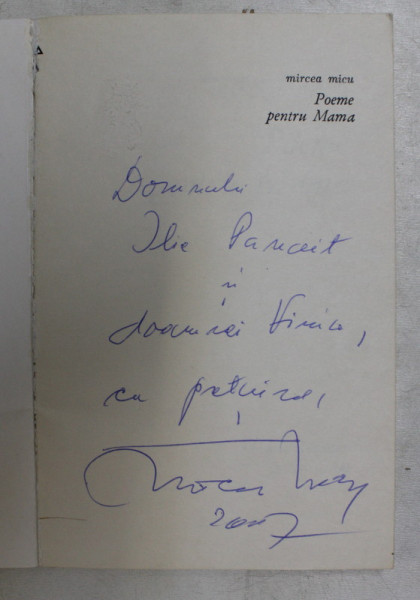 mircea micu
Poeme
pentru Mama
Domnului
Ilie
și
doamnei
cu prețuire,
Mircea Micu
2007